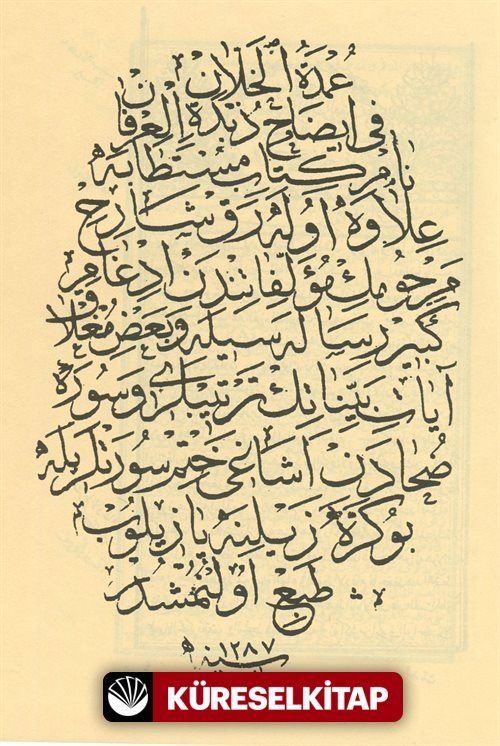 عُمْدَةُ الْخَلَّانِ
فِى اِيضَاحِ زُبْدَةِ الْعِرْفَانِ
نَامْ كِتَابِ مُسْتَطَابَه
عِلَاوَه اُولَه رَقْ شَارِحِ
مَرْحُومِكْ مُؤَلَّفَاتِنْدَنْ اِدْغَامِ
كَبِيرْ رِسَالَه سِيلَه وَبَعْضِ مُغْلَاقِ
آيَاتِ بَيِّنَاتِكْ تَرْتِيبْلَرِى وَسُورَهٔ
ضُحَادَنْ اَشَاغِى خَتْمِ سُورَتْلَرِيلَه
بُوكَرَّه ذَيْلِنَه يَازِيلُوبْ
طَبْعِ اُولُنْمُشْدُرْ
سنه ١٢٨٧
KÜRESELKİTAP